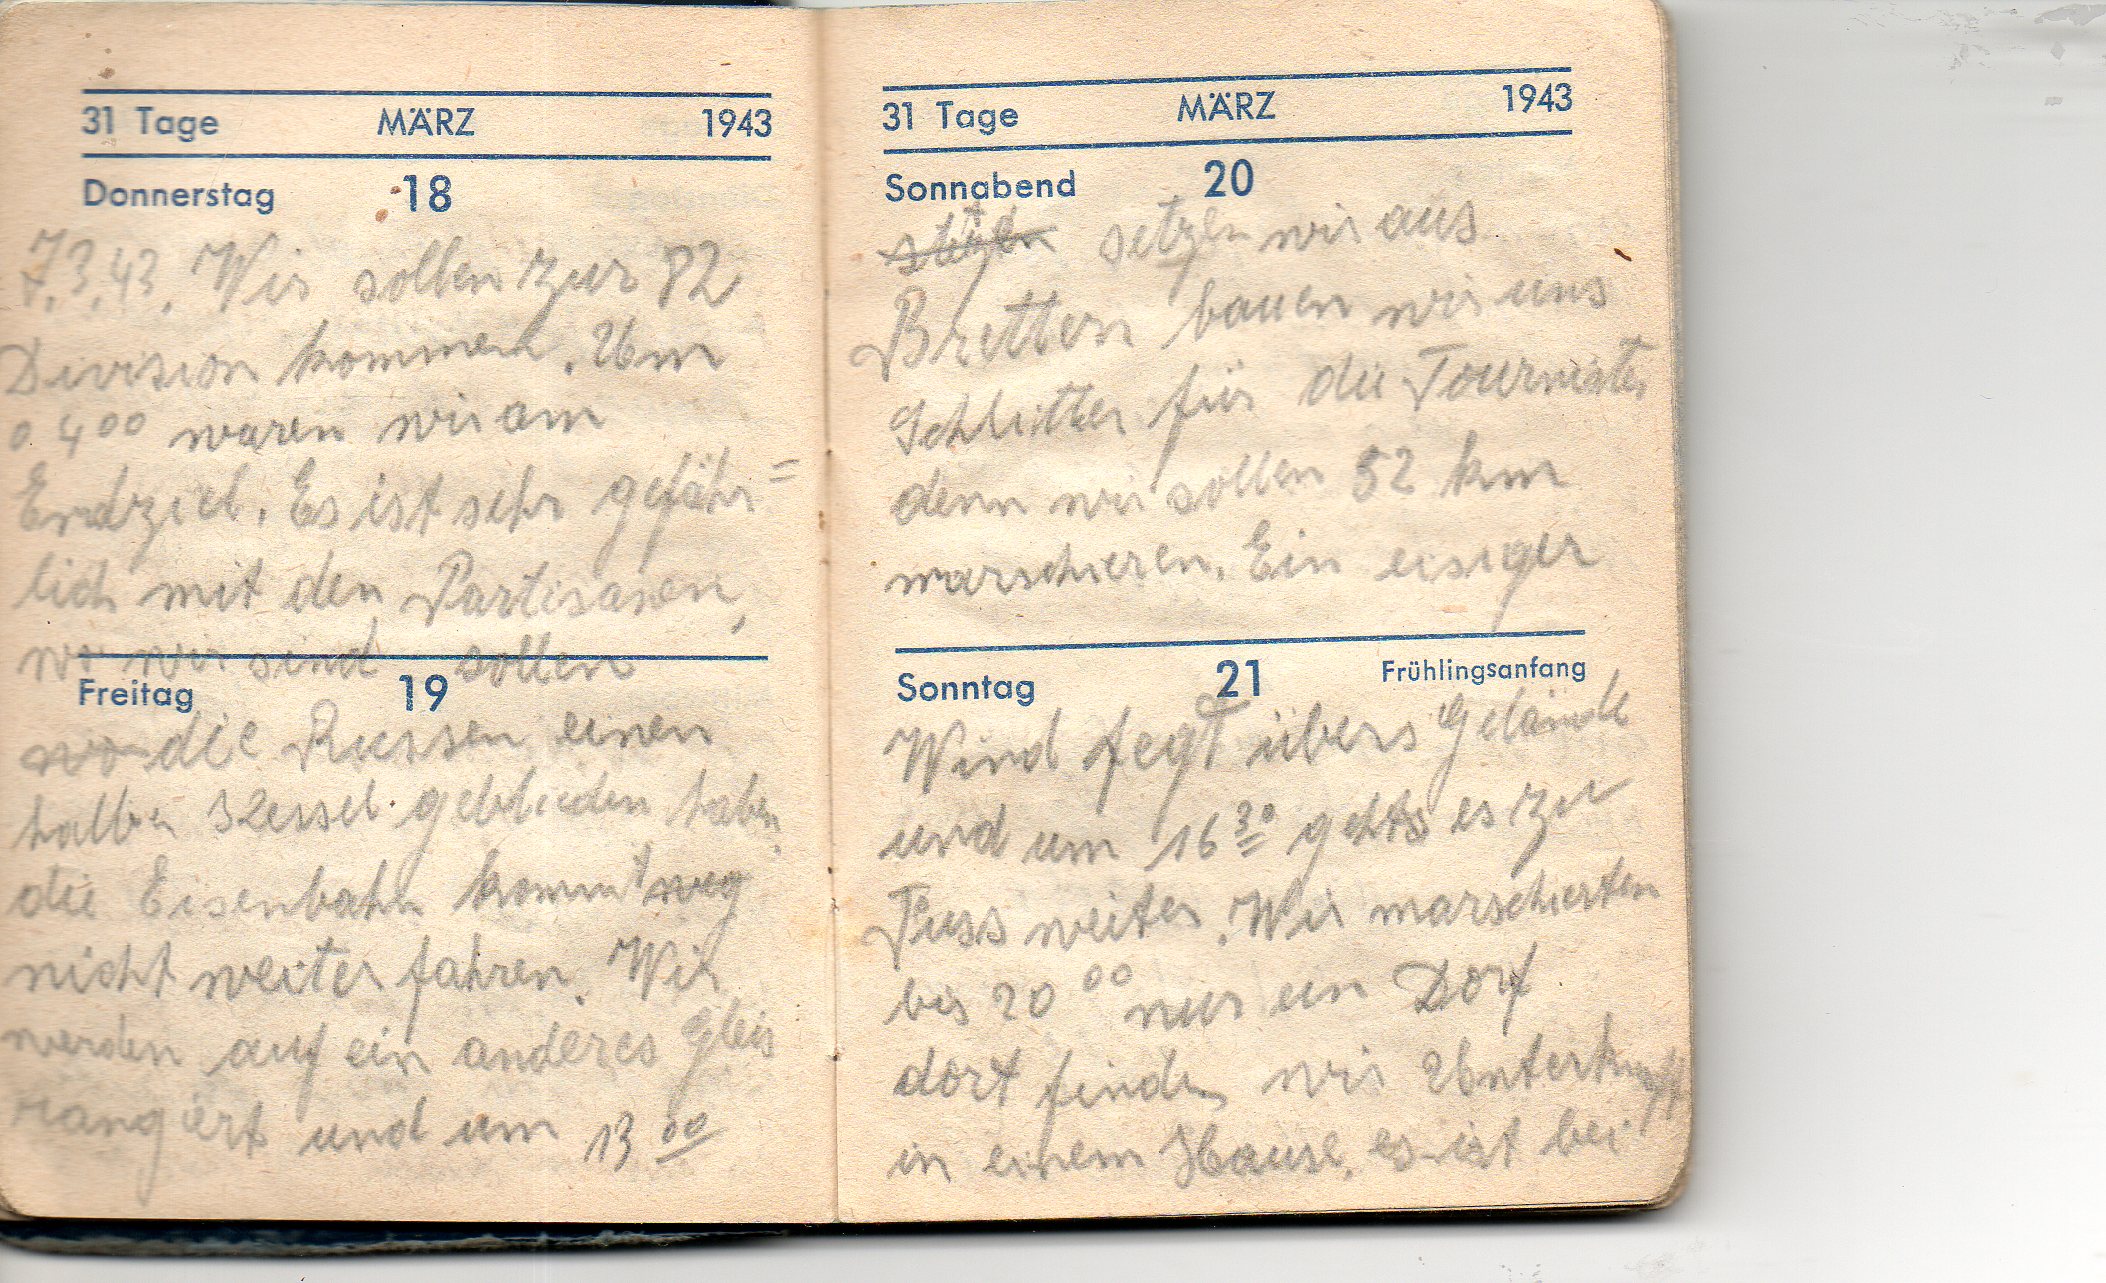 31 Tage MÄRZ 1943
Donnerstag 18
7.3.43. Wir sollen zur 82
Division kommen. Um
0 4 00 waren wir am
Endziel. Es ist sehr gefähr=
lich mit den Partisanen,
wo wir sind sollen
Freitag 19
wo die Russen einen
halben Kessel gebliden haben.
die Eisenbahn kommt weg
nicht weiter fahren. Wir
werden auf ein anderes Gleis
rangiert und um 13 00
31 Tage MÄRZ 1943
Sonnabend 20
setzen wir aus
Brettern bauen wir uns
Schlitten für die Tournister
denn wir sollen 52 km
marschieren. Ein eisiger
Sonntag 21 Frühlingsanfang
Wind fegt übers Gelände
und um 16 30 gehts es zu
Fuss weiter. Wir marschierten
bis 20 00 nur ein Dorf
dort finden wir Unterkunft
in einem Hause, es ist bei